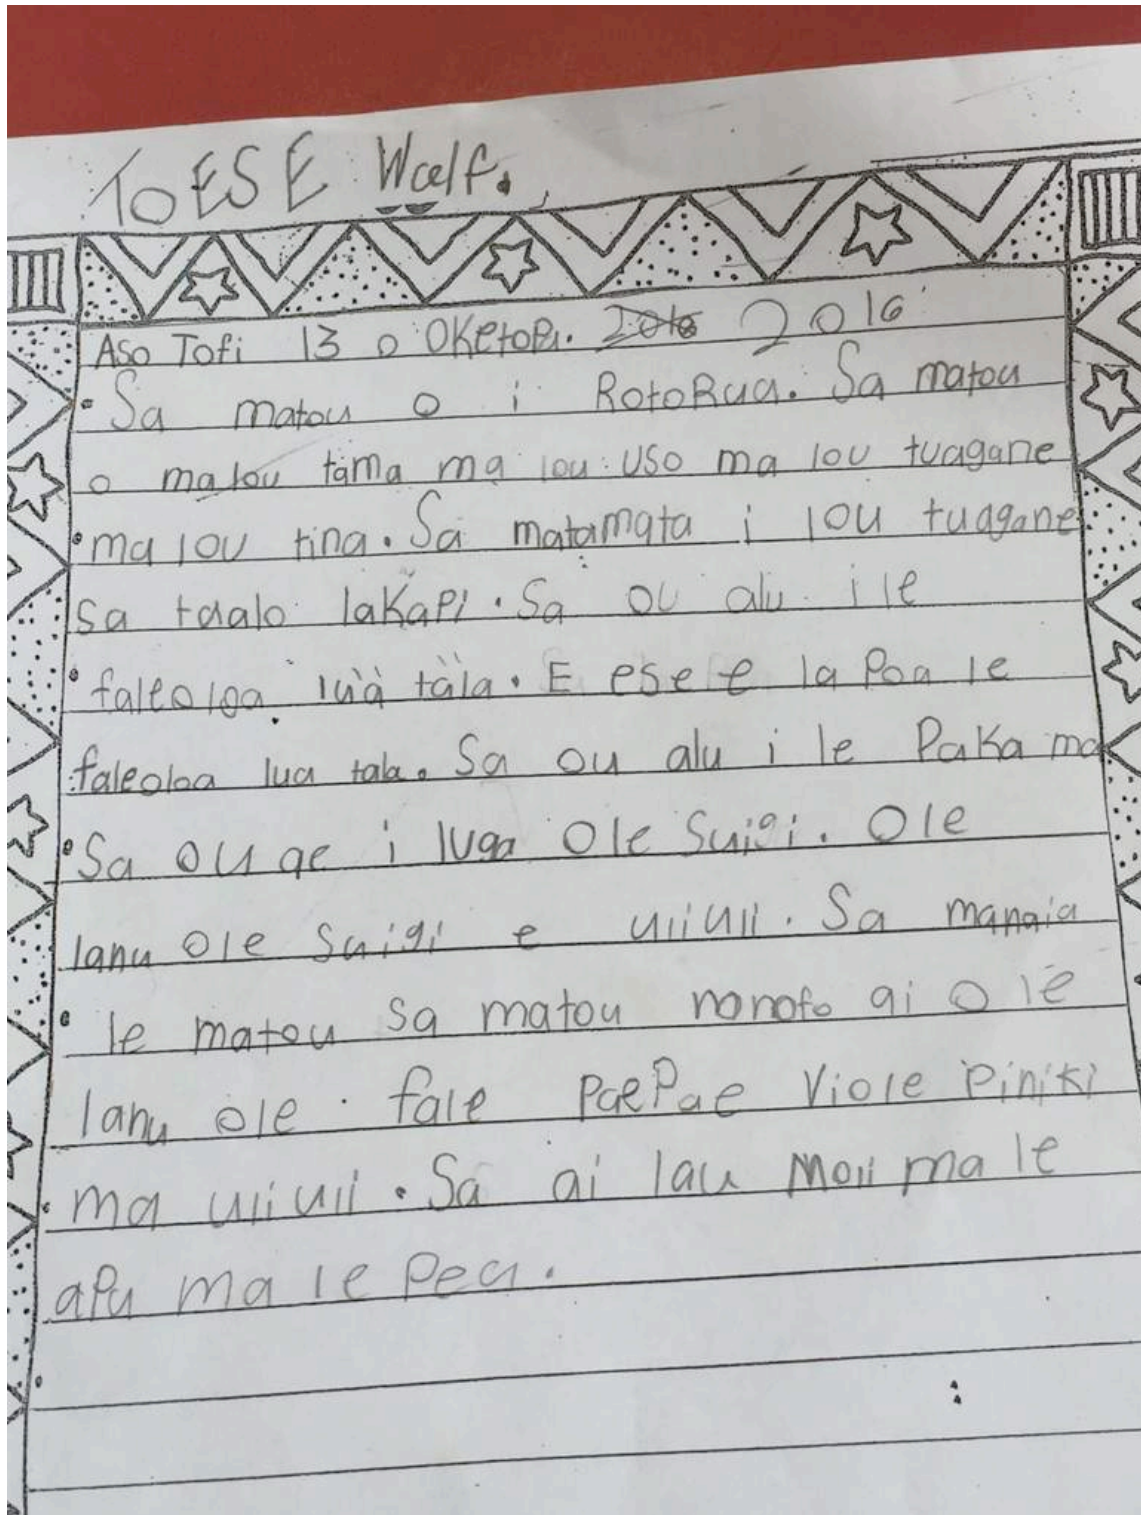 TOESE Wolf.
Aso Tofi 13 o Oketopa. 2016 2016
Sa matou o i RotoRua. Sa matou
o ma lou tama ma lou uso ma lou tuagane
ma lou tina. Sa matamata i lou tuagane
sa taalo lakapi. Sa ou alu i le
faleoloa lua tala. E ese e la Poa le
faleoloa lua tala. Sa ou alu i le Paka ma
Sa ou ae i luga Ole Suigi. Ole
lanu Ole Suigi e uliuli. Sa manaia
le matou sa matou nonofo ai O le
lanu ole fale PaePae Viole Piniki
ma uliuli. Sa ai lau Moli ma le
apu ma le Pea.